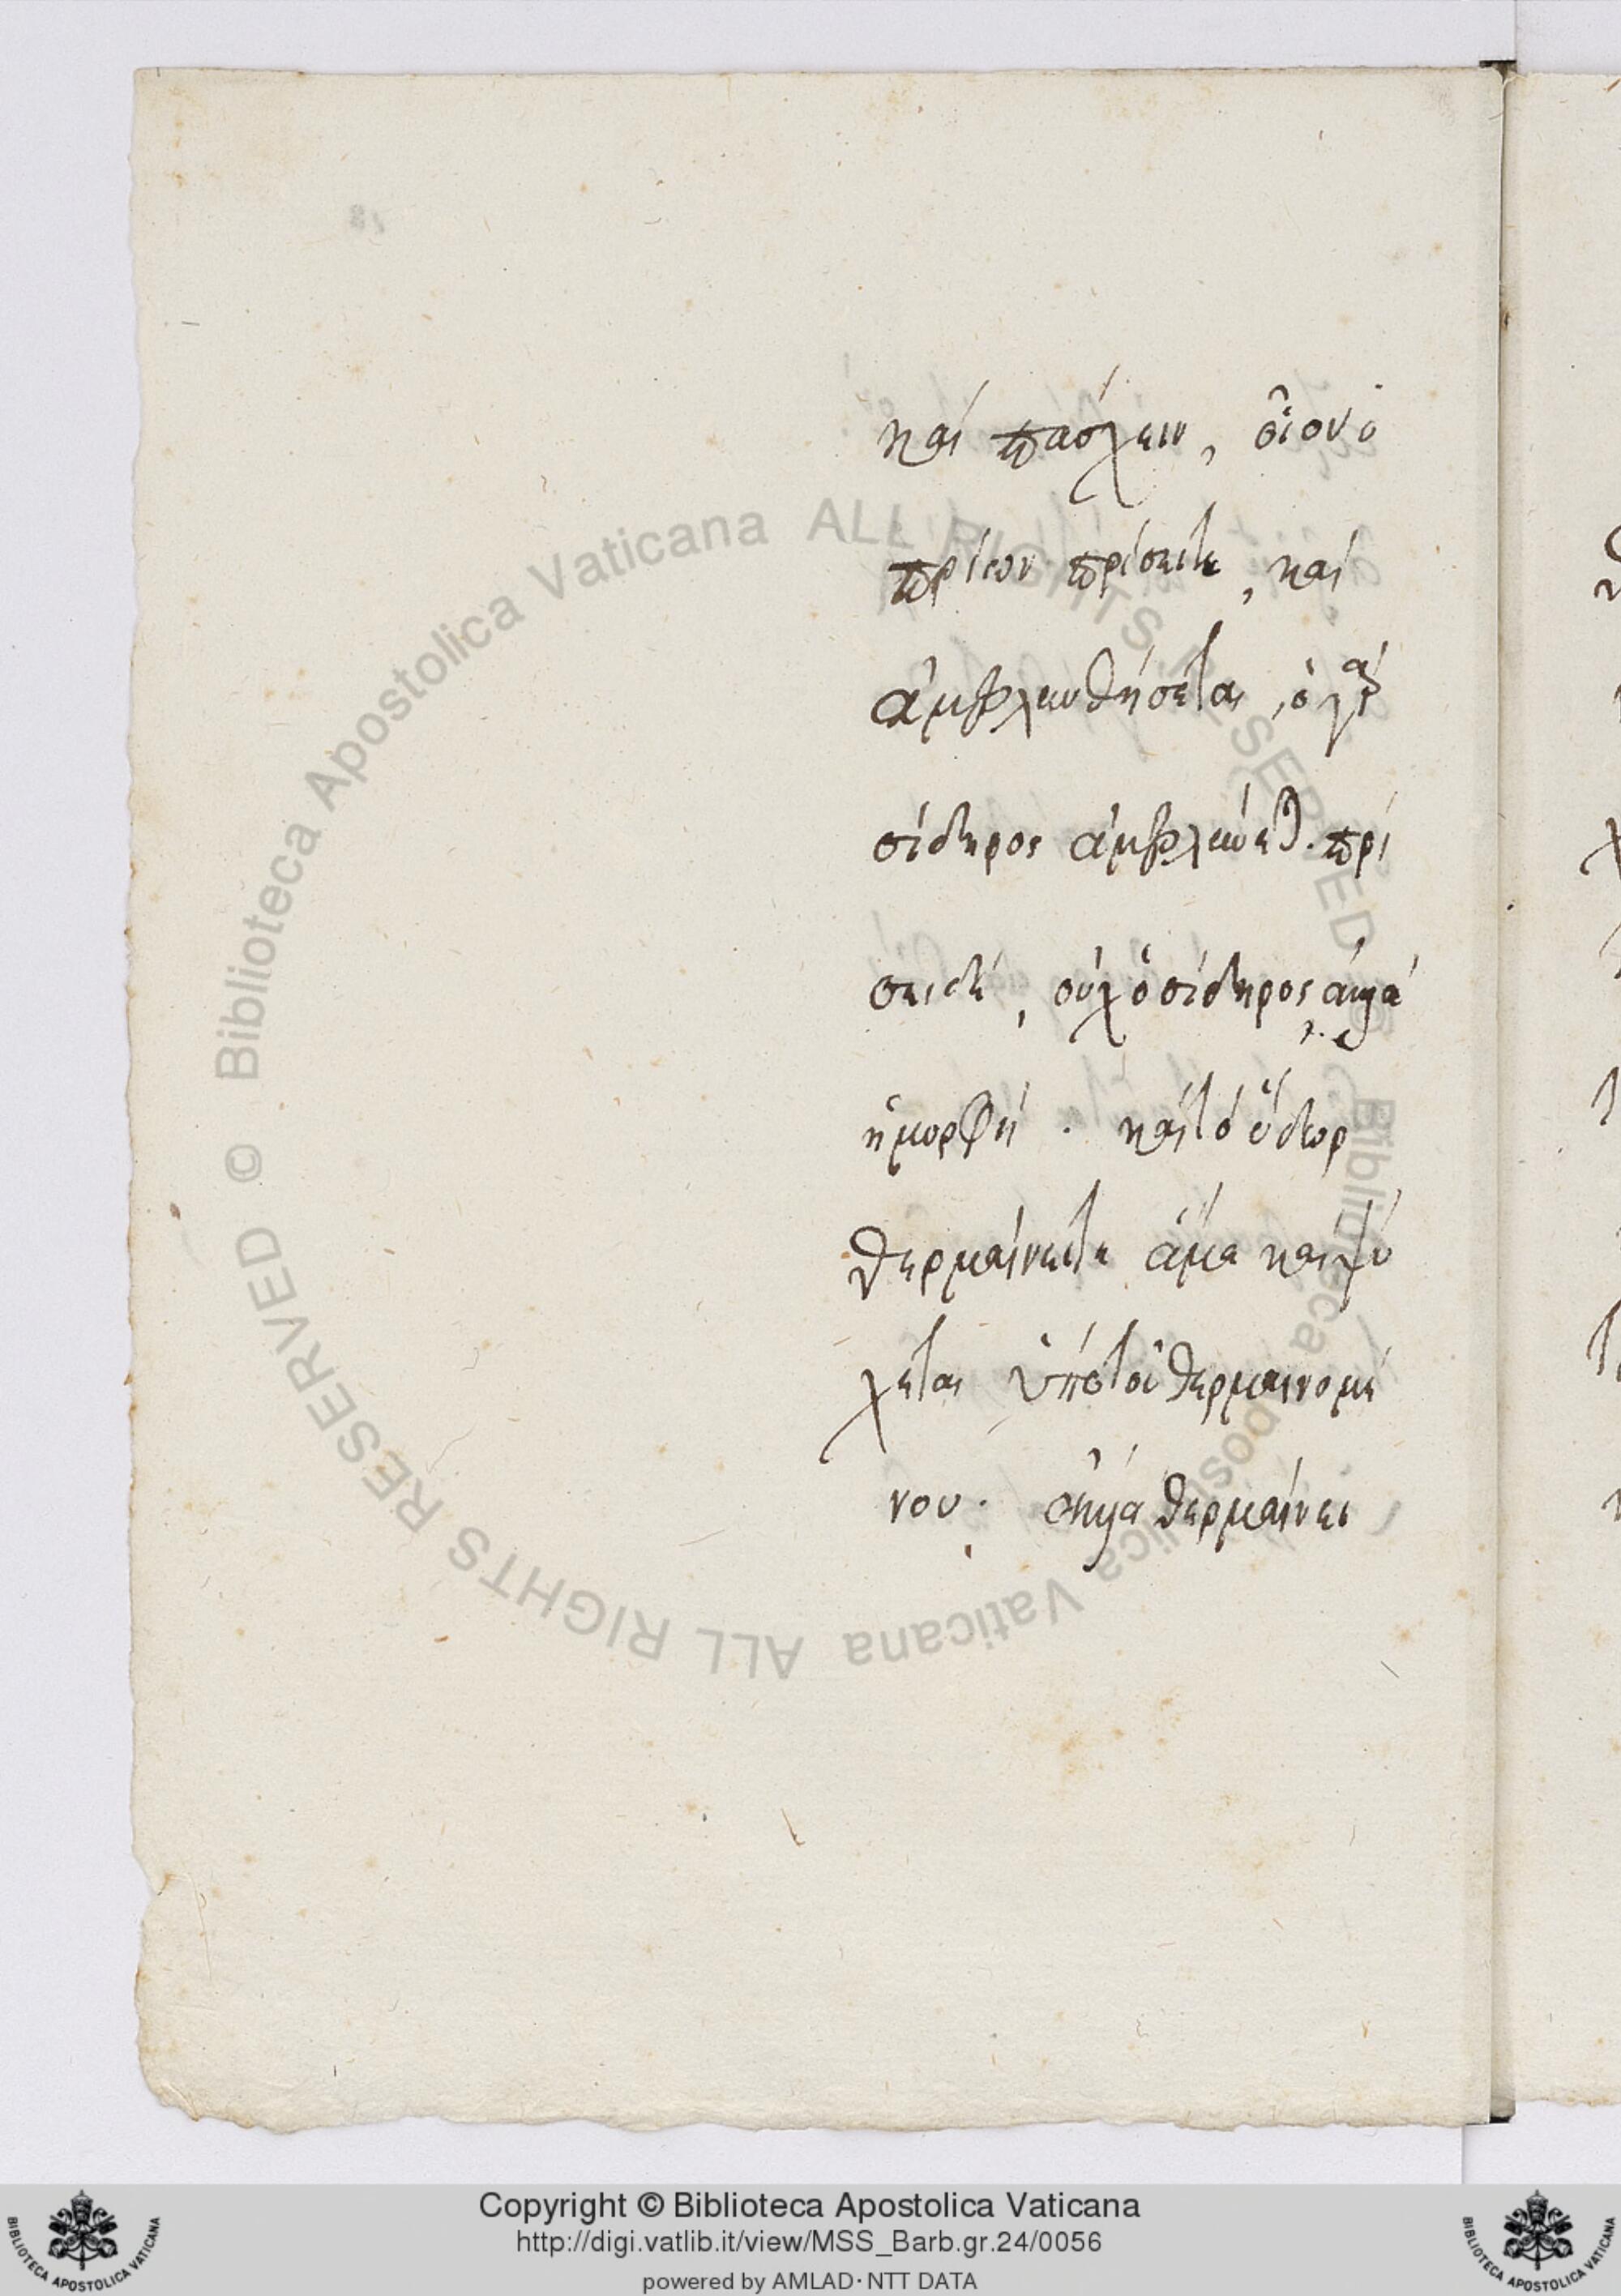 καὶ πάσχειν, οἷον ὁ
πρίων πρίσει τε, καὶ
ἀμβλυνθήσεται, ὁ γὰρ
σίδηρος ἀμβλύνεται. πρί
σει δὲ, οὐχ ὁ σίδηρος ἀλλὰ
ἡ μορφή. καὶ τὸ ὕδωρ
θερμαίνει τε ἅμα καὶ ψύ
χεται ὑπὸ τοῦ θερμαινομέ
νου. ἀλλὰ θερμαίνει
Biblioteca Apostolica Vaticana ALL RIGHTS RESERVED © Biblioteca Apostolica Vaticana ALL RIGHTS RESERVED ©
Copyright © Biblioteca Apostolica Vaticana
http://digi.vatlib.it/view/MSS_Barb.gr.24/0056
powered by AMLAD·NTT DATA
BIBLIOTECA APOSTOLICA VATICANA
BIBLIOTECA APOSTOLICA VATICANA